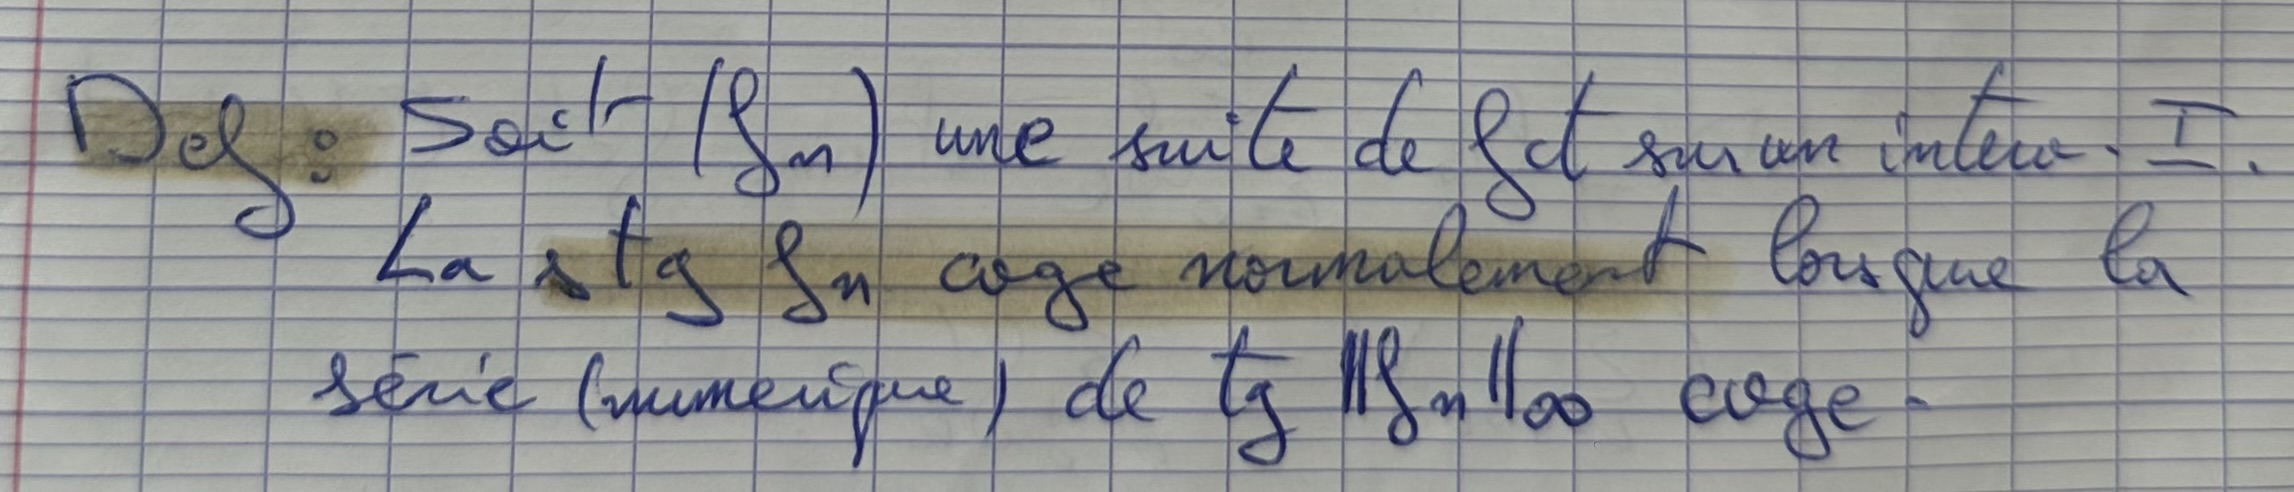 Def : Soit (fn) une suite de fct sur un interv. I.
La s tg fn cvge normalement lorsque la
série (numérique) de tg ||fn||∞ cvge.